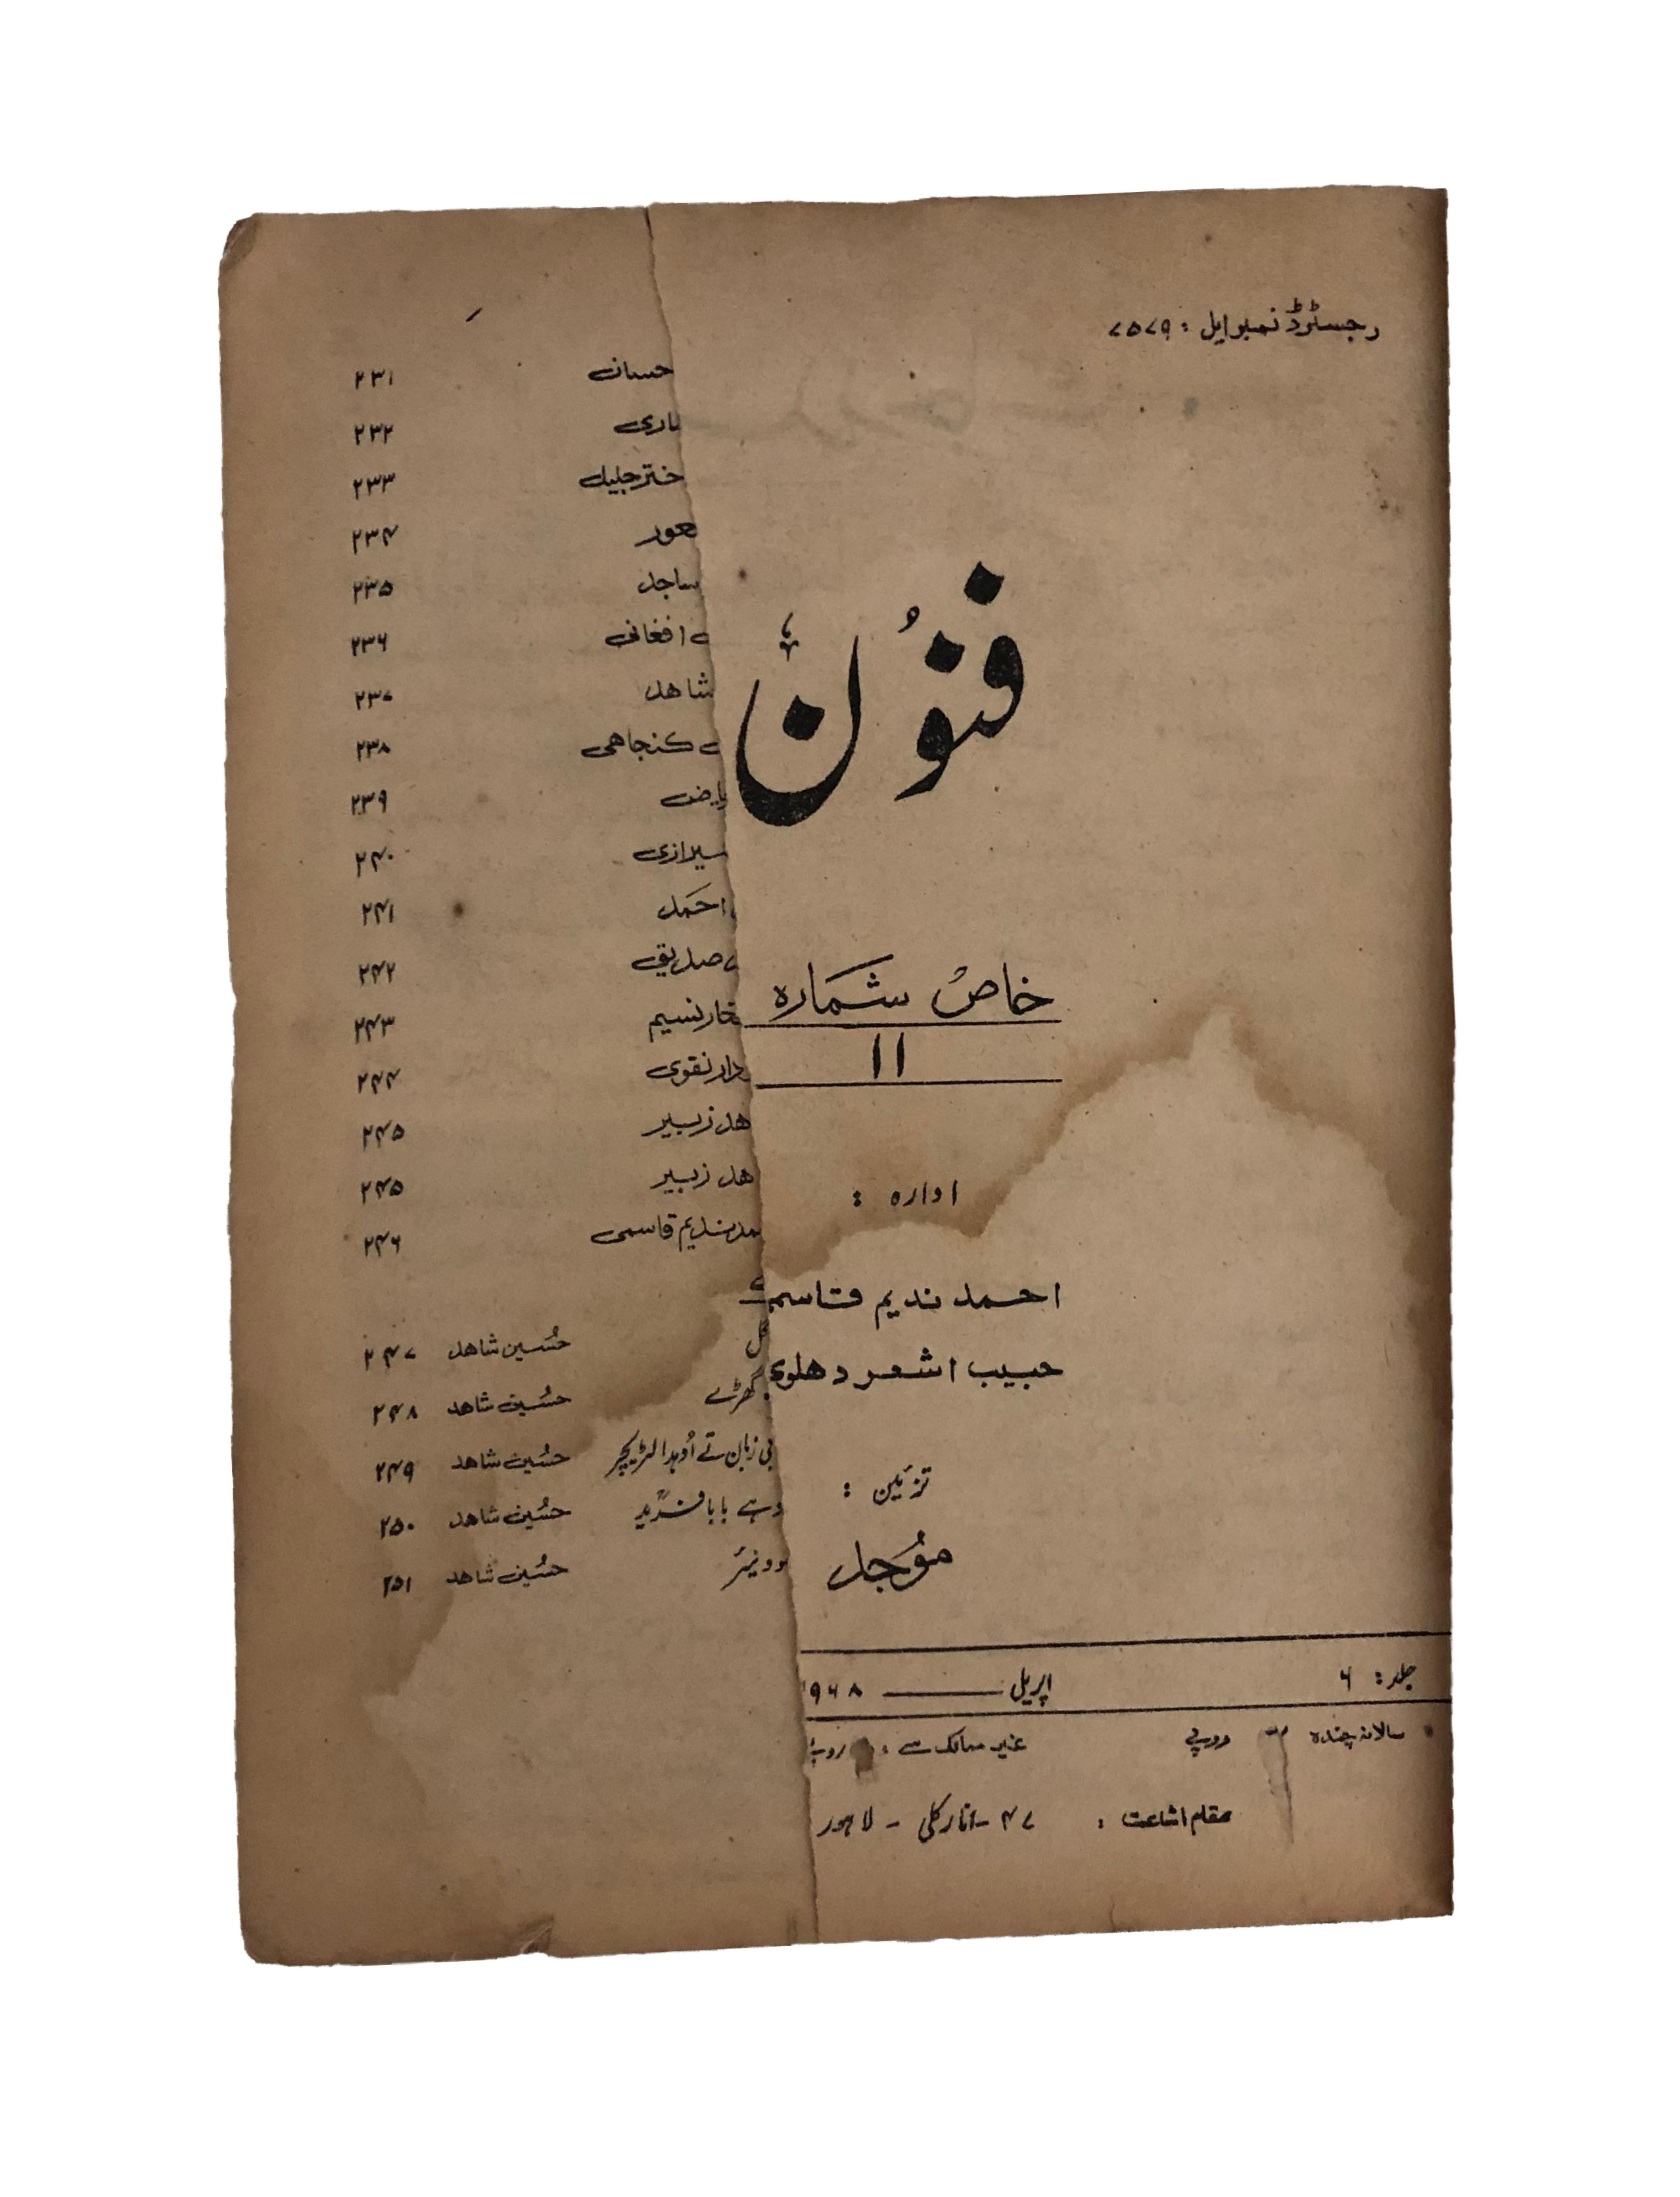 رجسٹرڈ نمبر ایل : ۷۵۷۹
فنُون
لاہور
خاص شمارہ
۱۱
ادارہ :
احمد ندیم قاسمی
حبیب اشعر دہلوی
تزئین :
مُوجد
جلد : ۶ اپریل ــــــ ۱۹۶۸
سالانہ چندہ روپے غیر ممالک سے : روپے
مقام اشاعت : ۴۷ - انارکلی - لاہور
حسان ۲۳۱
۲۳۲
ختر جلیل ۲۳۳
۲۳۴
ساجد ۲۳۵
افغانی ۲۳۶
شاہد ۲۳۷
کنجاہی ۲۳۸
یاض ۲۳۹
شیرازی ۲۴۰
احمد ۲۴۱
صدیقی ۲۴۲
خار نسیم ۲۴۳
دار نقوی ۲۴۴
ہد زبیر ۲۴۵
ہد زبیر ۲۴۵
مد ندیم قاسمی ۲۴۶
گل حُسین شاہد ۲۴۷
گھڑے حُسین شاہد ۲۴۸
بی زبان تے اُوہدا لٹریچر حُسین شاہد ۲۴۹
دہے بابا فریدؒ حُسین شاہد ۲۵۰
وونیئر حُسین شاہد ۲۵۱